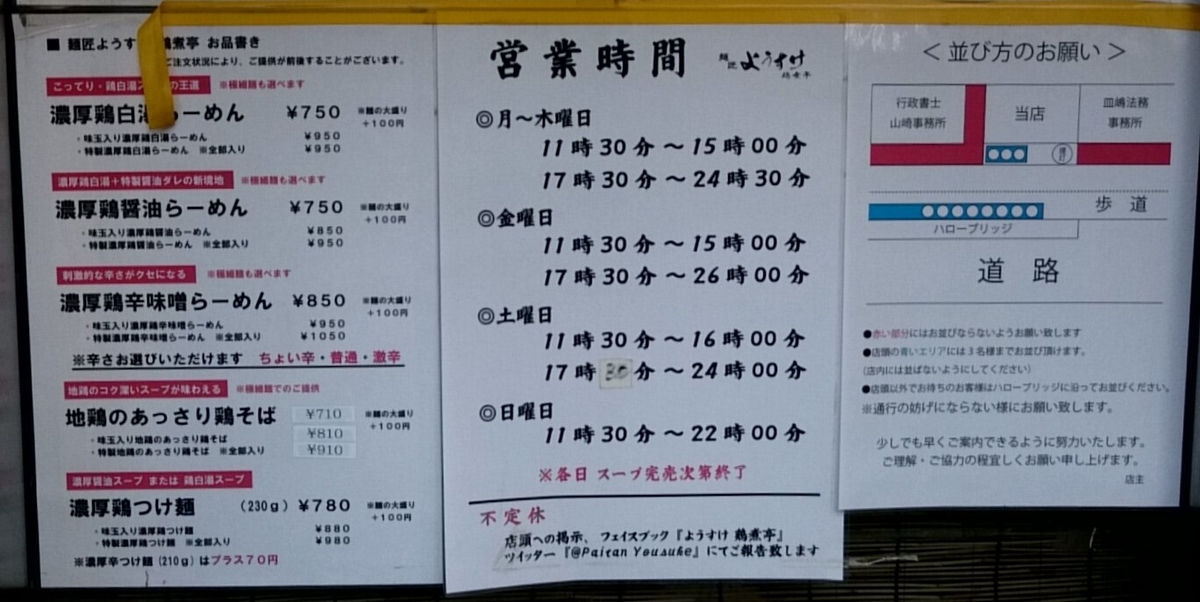 ■ 麺匠ようす 鶏煮亭 お品書き
ご注文状況により、ご提供が前後することがございます。
こってり・鶏白湯ス の王道 ※極細麺も選べます
濃厚鶏白湯らーめん ¥750 ※麺の大盛り
+100円
・味玉入り濃厚鶏白湯らーめん ¥950
・特製濃厚鶏白湯らーめん ※全部入り ¥950
濃厚鶏白湯+特製醤油ダレの新境地 ※極細麺も選べます
濃厚鶏醤油らーめん ¥750 ※麺の大盛り
+100円
・味玉入り濃厚鶏醤油らーめん ¥850
・特製濃厚鶏醤油らーめん ※全部入り ¥950
刺激的な辛さがクセになる ※極細麺も選べます
濃厚鶏辛味噌らーめん ¥850 ※麺の大盛り
+100円
・味玉入り濃厚鶏辛味噌らーめん ¥950
・特製濃厚鶏辛味噌らーめん ※全部入り ¥1050
※辛さお選びいただけます ちょい辛・普通・激辛
地鶏のコク深いスープが味わえる ※極細麺でのご提供
地鶏のあっさり鶏そば ¥710 ※麺の大盛り
+100円
・味玉入り地鶏のあっさり鶏そば ¥810
・特製地鶏のあっさり鶏そば ※全部入り ¥910
濃厚醤油スープ または 鶏白湯スープ
濃厚鶏つけ麺 (230g) ¥780 ※麺の大盛り
+100円
・味玉入り濃厚鶏つけ麺 ¥880
・特製濃厚鶏つけ麺 ※全部入り ¥980
※濃厚辛つけ麺(210g)はプラス70円
営業時間 麺匠 ようすけ 鶏煮亭
◎月～木曜日
11時30分～15時00分
17時30分～24時30分
◎金曜日
11時30分～15時00分
17時30分～26時00分
◎土曜日
11時30分～16時00分
17時30分～24時00分
◎日曜日
11時30分～22時00分
※各日 スープ完売次第終了
不定休
店頭への掲示、フェイスブック『ようすけ 鶏煮亭』
ツイッター『@Paitan Yousuke』にてご報告致します
＜ 並び方のお願い ＞
行政書士
山崎事務所
当店
皿嶋法務
事務所
歩 道
ハローブリッジ
道 路
●赤い部分にはお並びならないようお願い致します
●店頭の青いエリアには3名様までお並び頂けます。
(店内には並ばないようにしてください)
●店頭以外でお待ちのお客様はハローブリッジに沿ってお並びください。
※通行の妨げにならない様にお願い致します。
少しでも早くご案内できるように努力いたします。
ご理解・ご協力の程宜しくお願い申し上げます。
店主